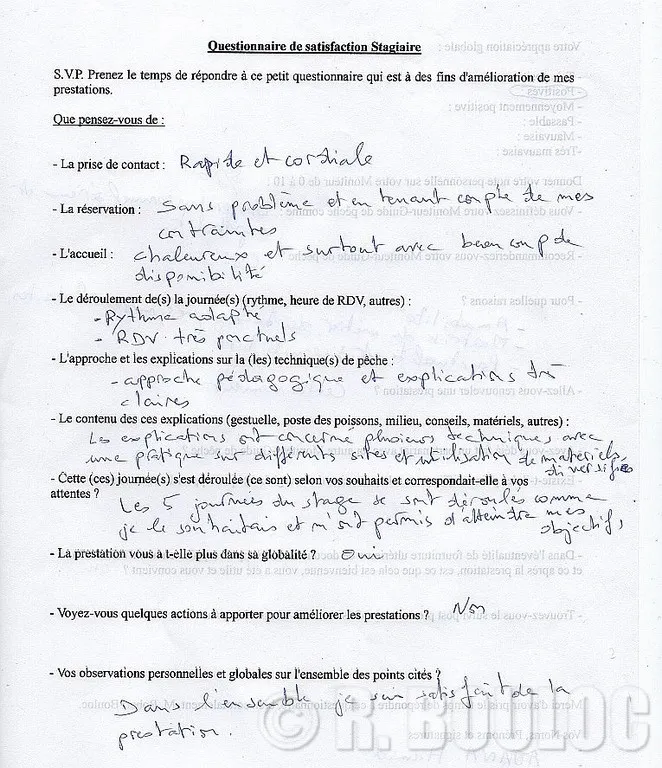 Questionnaire de satisfaction Stagiaire
S.V.P. Prenez le temps de répondre à ce petit questionnaire qui est à des fins d'amélioration de mes
prestations.
Que pensez-vous de :
- La prise de contact : Rapide et cordiale
- La réservation : Sans problème et en tenant compte de mes
contraintes
- L'accueil : chaleureux et surtout avec beaucoup de
disponibilité
- Le déroulement de(s) la journée(s) (rythme, heure de RDV, autres) :
- Rythme adapté
- RDV très ponctuels
- L'approche et les explications sur la (les) technique(s) de pêche :
- approche pédagogique et explications très
claires
- Le contenu des ces explications (gestuelle, poste des poissons, milieu, conseils, matériels, autres) :
Les explications ont concerné plusieurs techniques avec
une pratique sur différents sites et utilisation de matériels
diversifiés
- Cette (ces) journée(s) s'est déroulée (ce sont) selon vos souhaits et correspondait-elle à vos
attentes ? Les 5 journées du stage se sont déroulées comme
je le souhaitais et m'ont permis d'atteindre mes
objectifs
- La prestation vous a t-elle plus dans sa globalité ? Oui
- Voyez-vous quelques actions à apporter pour améliorer les prestations ? Non
- Vos observations personnelles et globales sur l'ensemble des points cités ?
Dans l'ensemble je suis satisfait de la
prestation.
© R. BOULOC